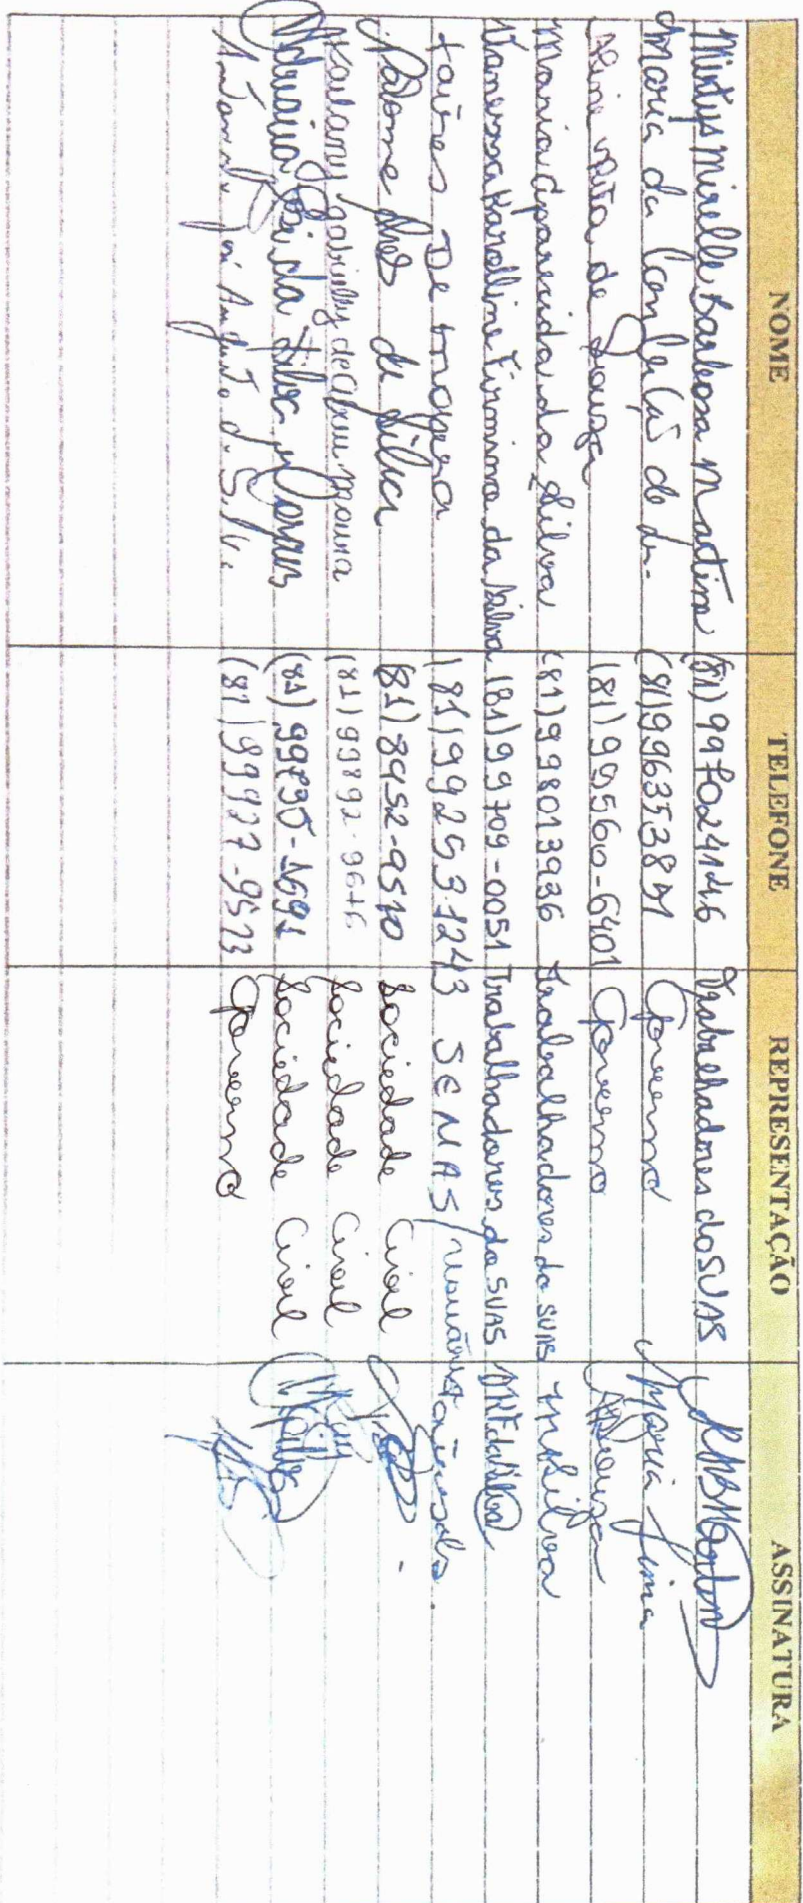 NOME TELEFONE REPRESENTAÇÃO ASSINATURA
Mirelle Barbosa Martins (81) 997024146 Trabalhadores do SUAS
Maria da Conceição de Li- (81)996353871 Governo Maria Lima
Aline Rita de Souza (81) 99560-6401 Governo ASouza
Maria Aparecida da Silva (81)998013936 Trabalhadores do SUAS MASilva
Vanessa Karolline Firmino da Silva (81)99709-0051 Trabalhadores do SUAS VKFdaSilva
taires De moPera (81)992531243 SEMAS/usuários
Palome de Silva (81)8952-9510 Sociedade Civil
Kailany gabrielly de Abreu moura (81)99892-9646 Sociedade Civil
Adriana José da Silva Morais (81) 99795-1691 Sociedade Civil
José Augusto da Silva (81)99927-9523 Governo